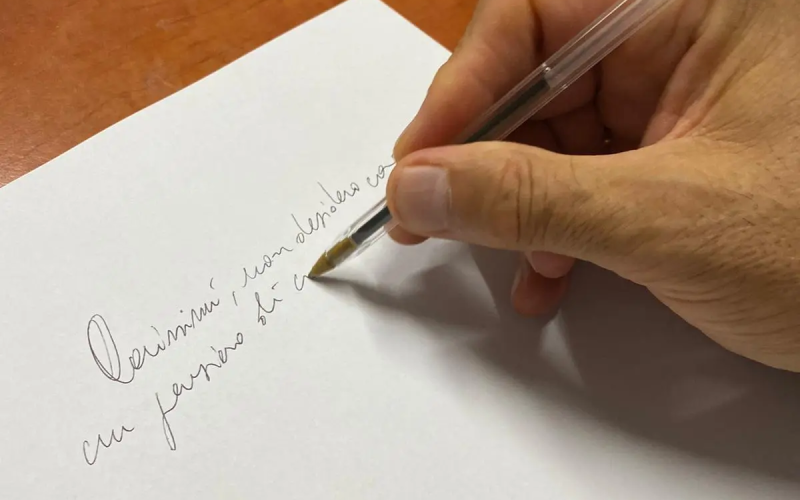 Carissimi, non desidero co
un pensiero di c